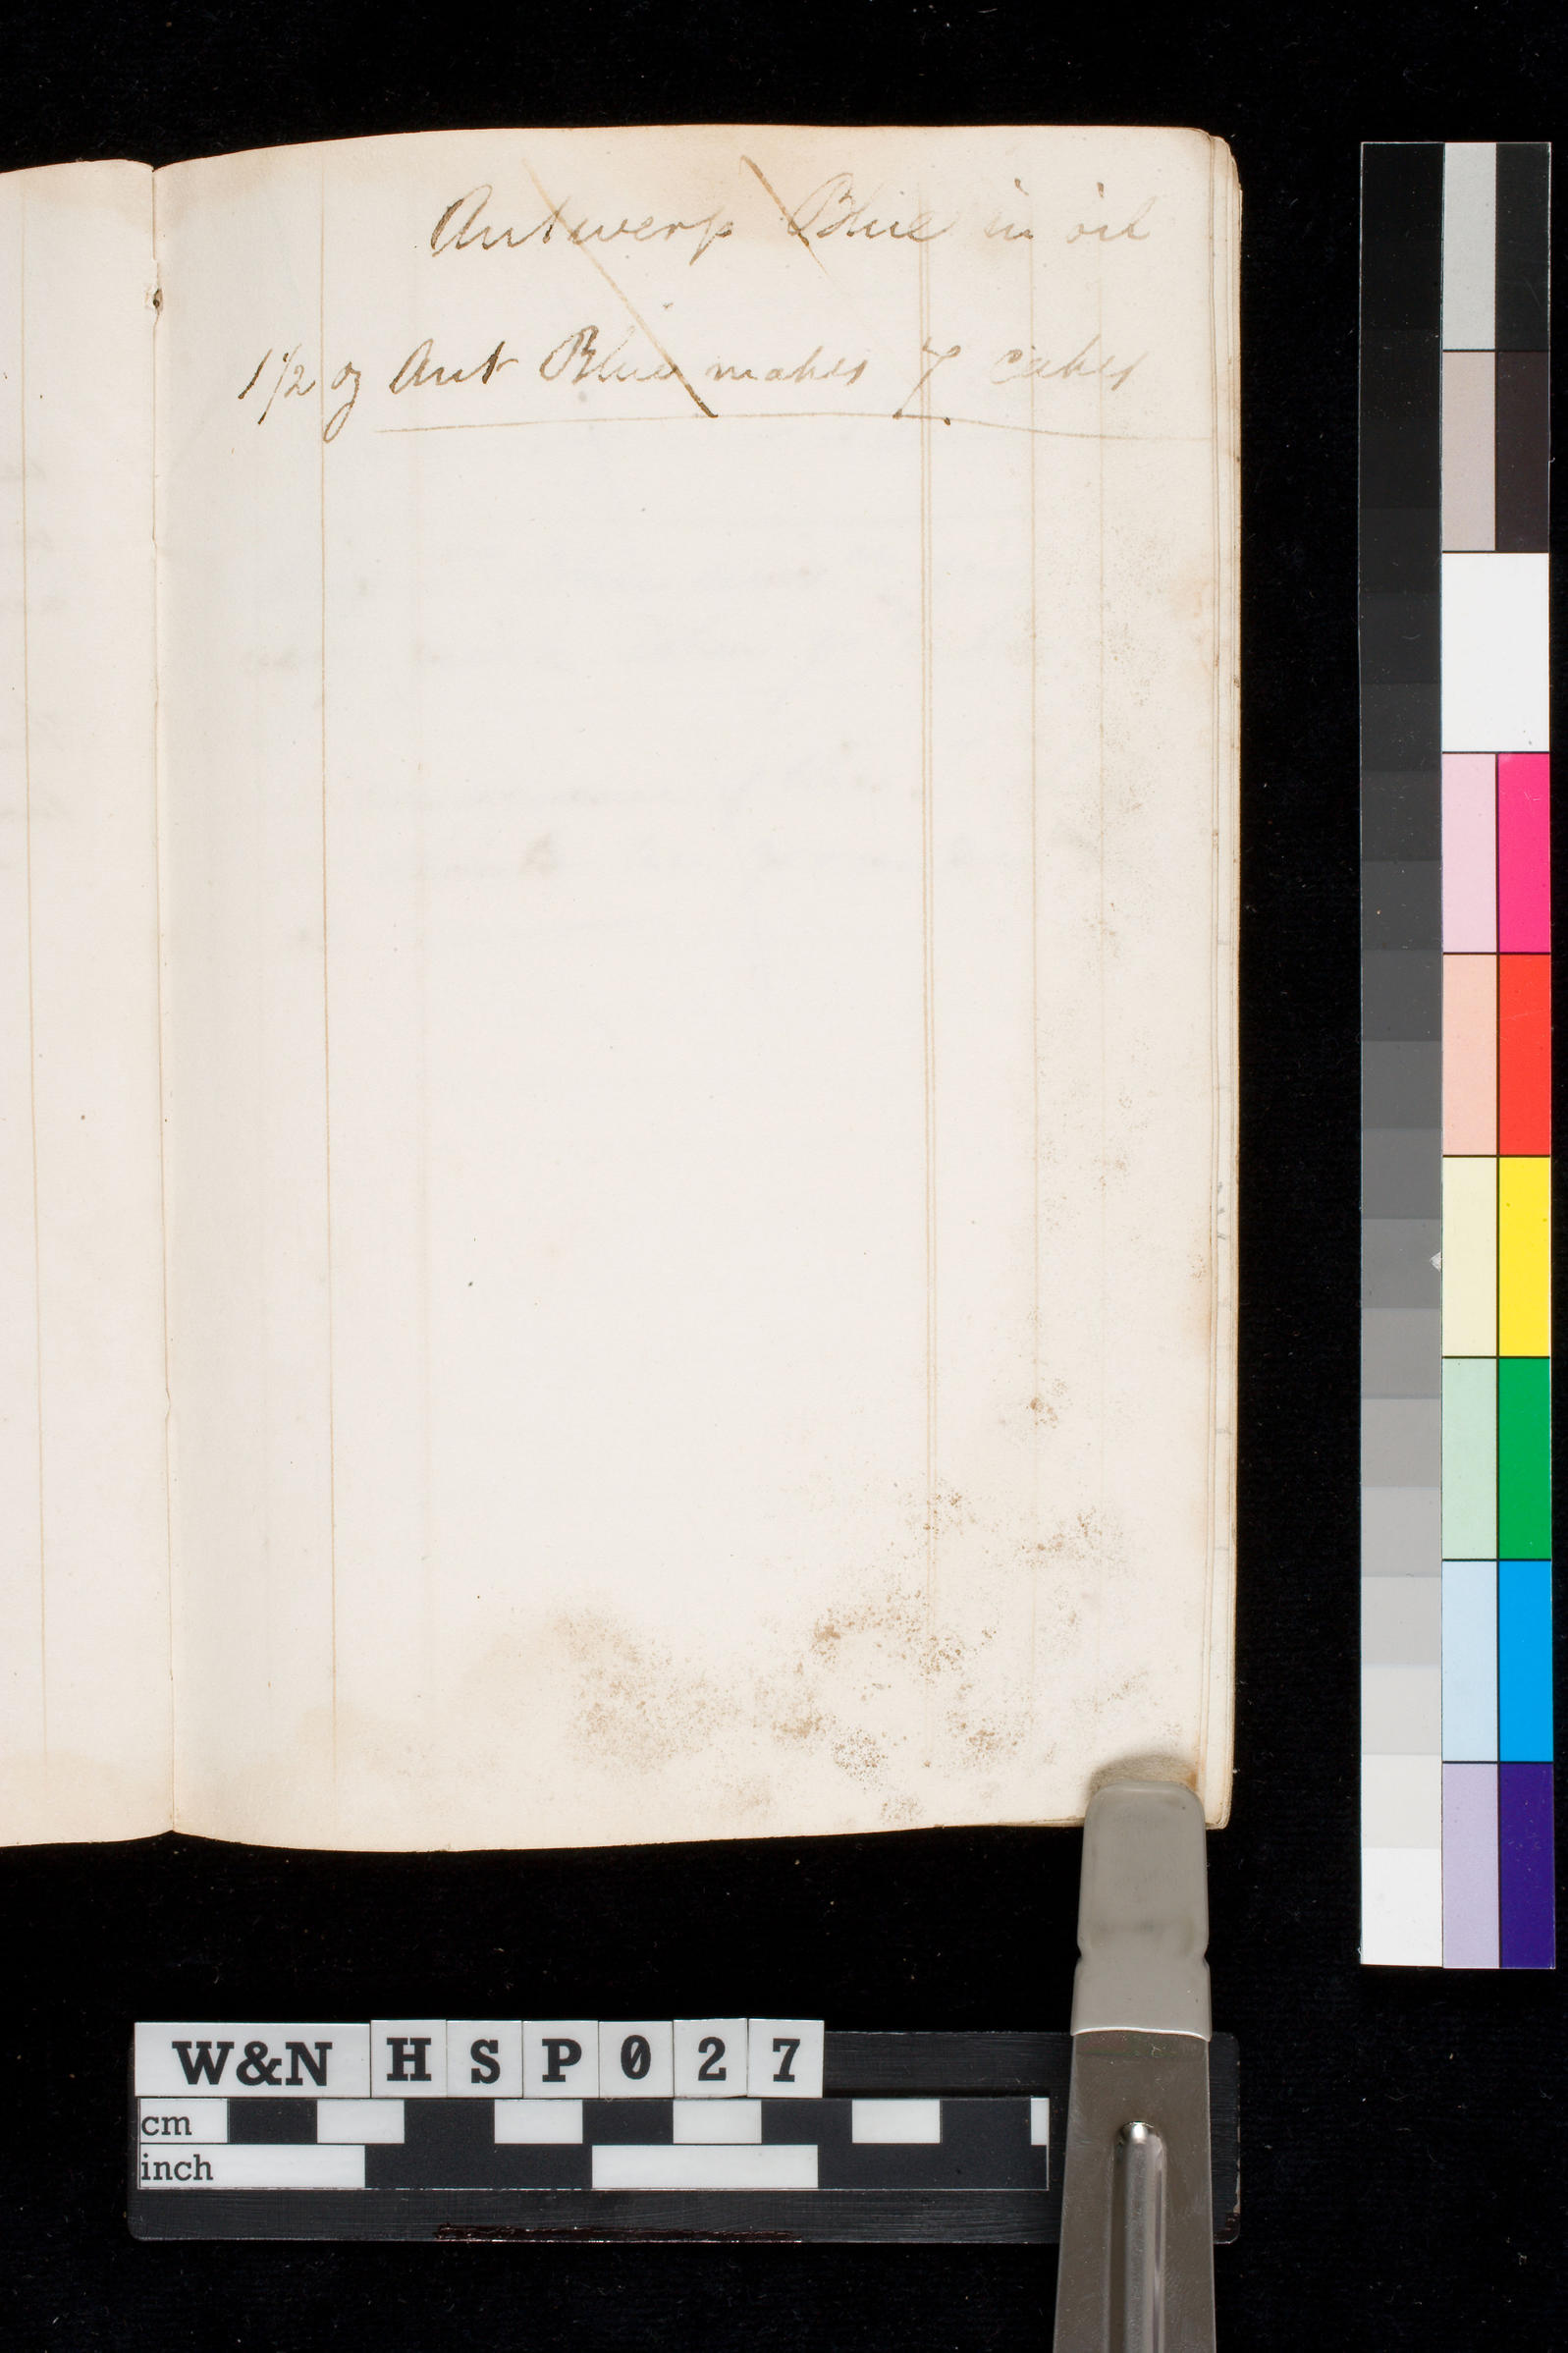 Antwerp Blue in oil
1 1/2 oz Ant Blue makes 7 cakes
W&N HSP027
cm
inch